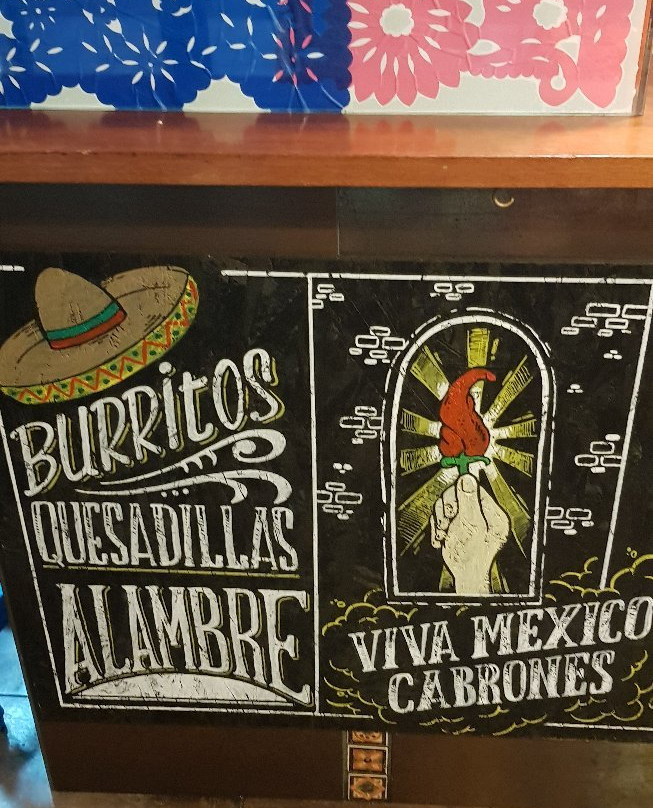 BURRITOS
QUESADILLAS
ALAMBRE
VIVA MEXICO
CABRONES